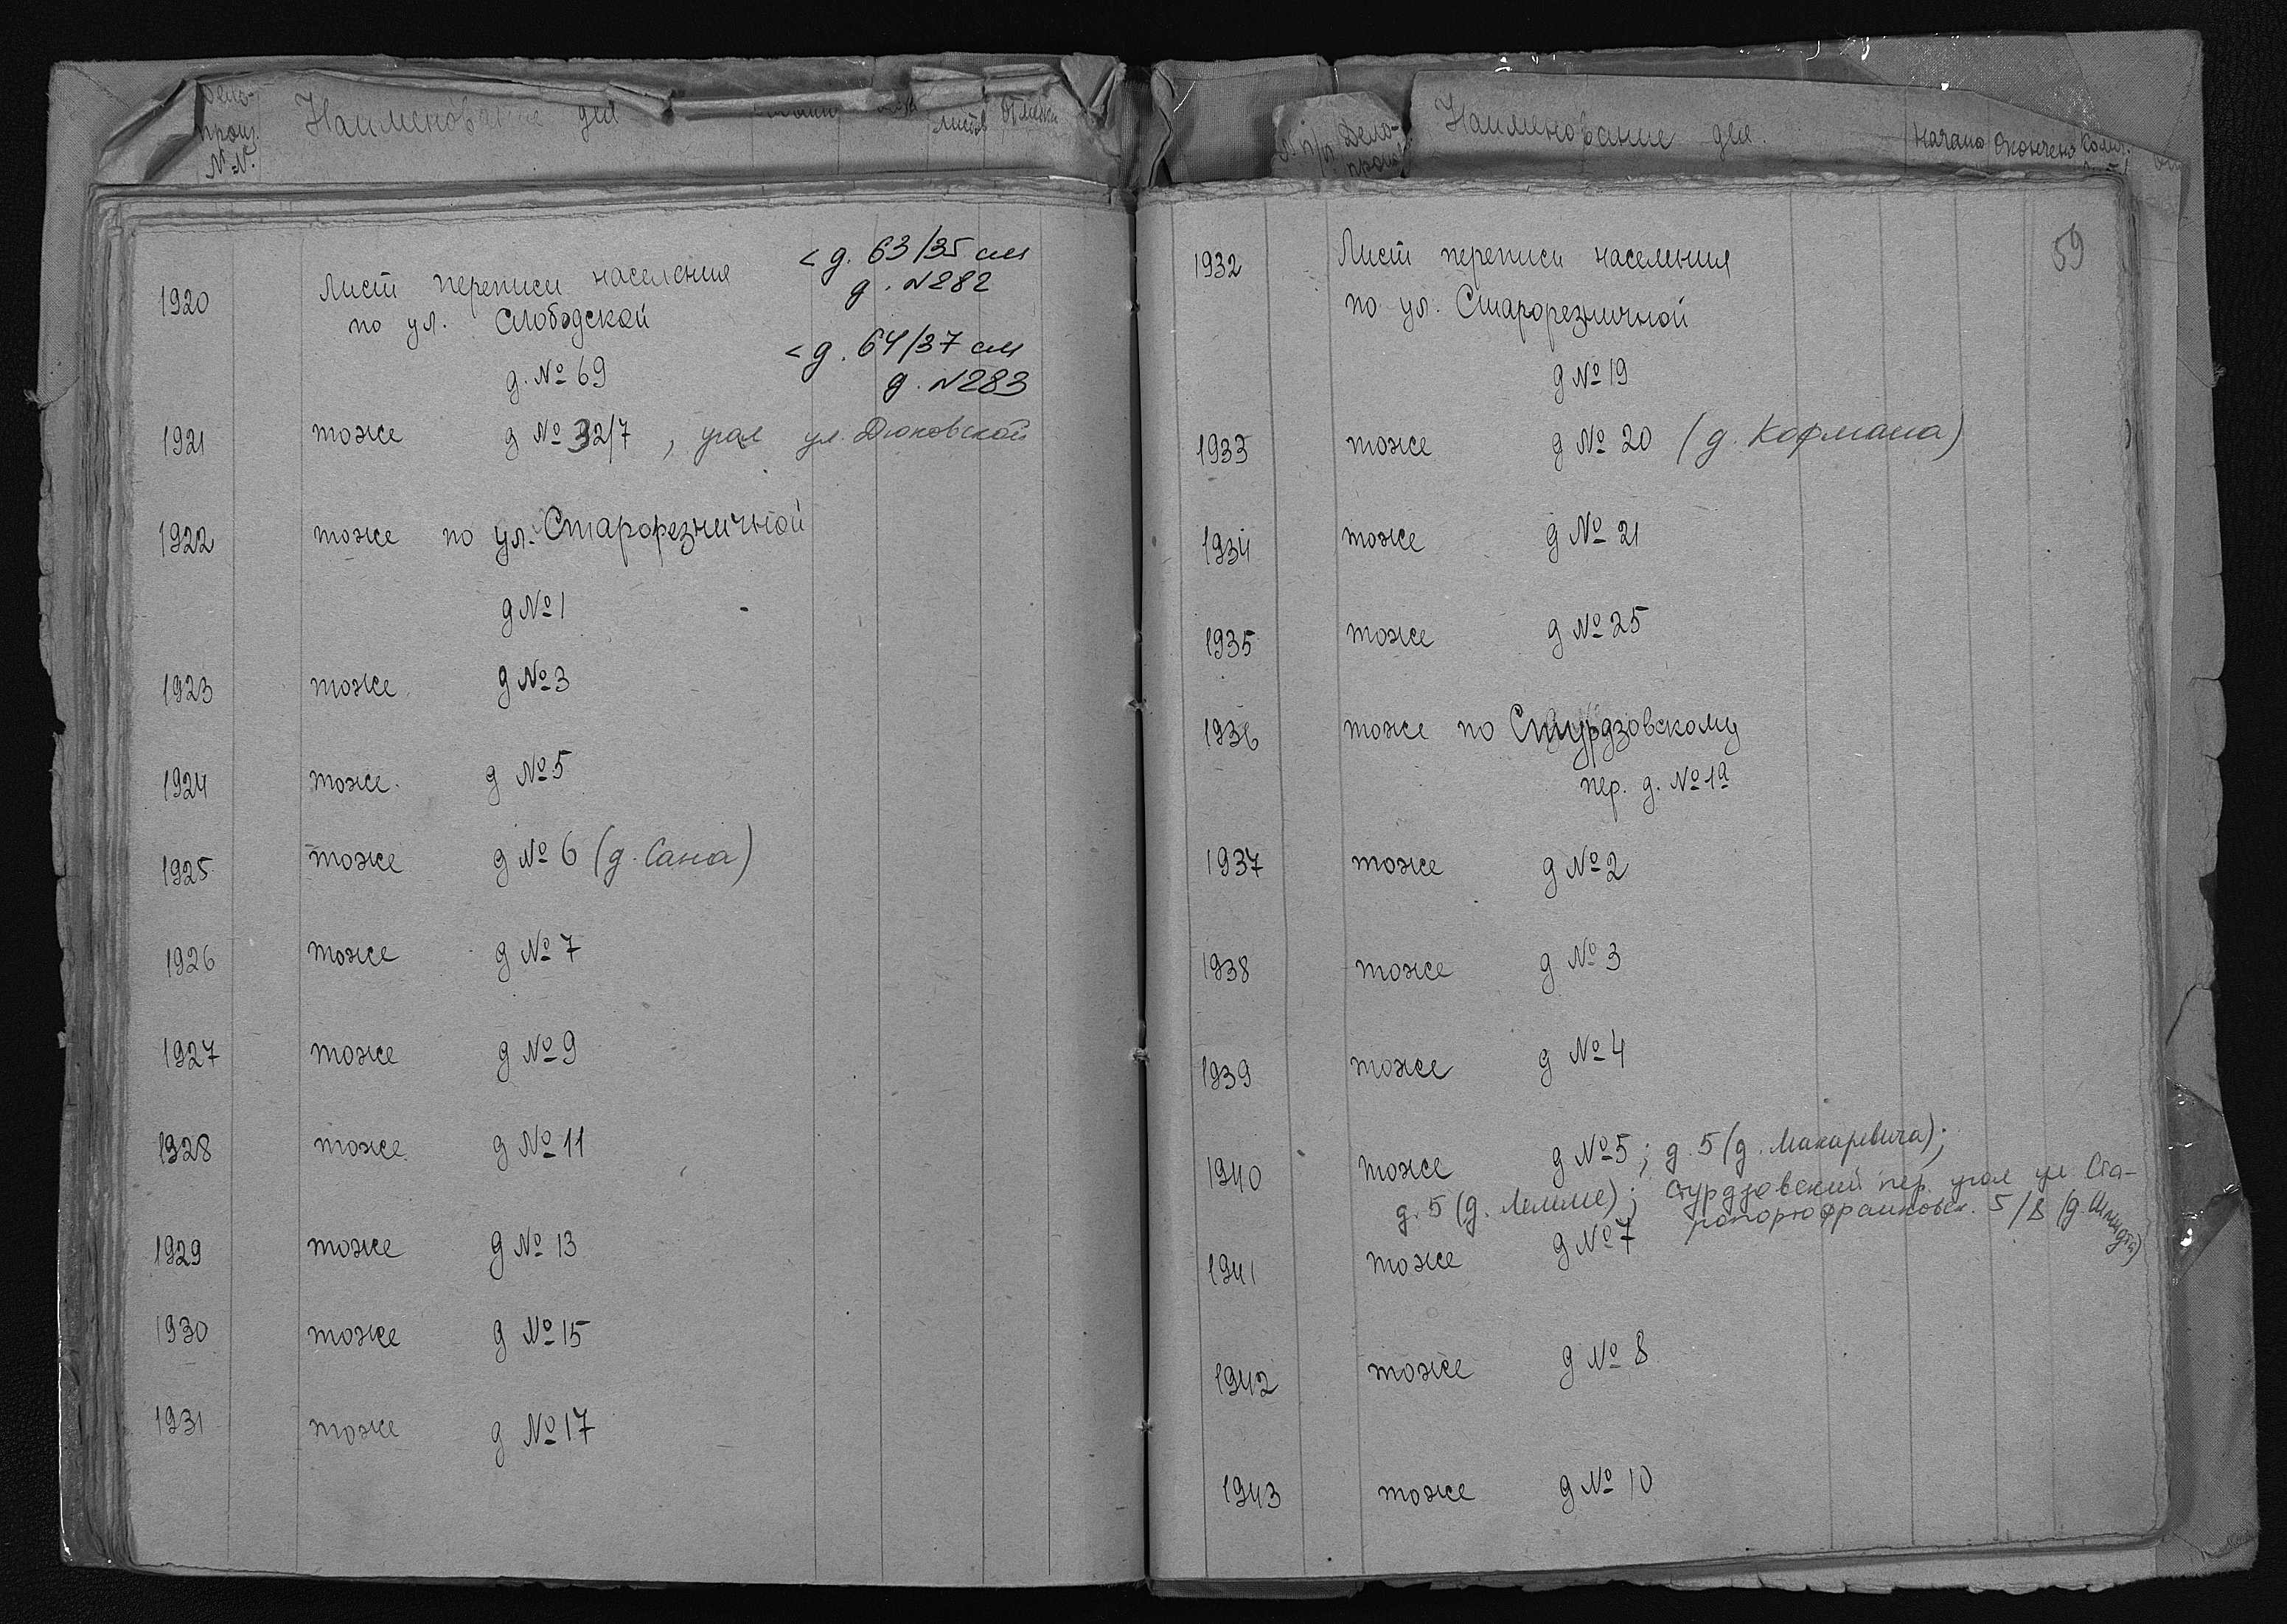 Дело-
произ.
N-N.
Наименование дел
листов
1920
Лист переписи населения
по ул. Слободской
д. № 69
< д. 63/35 см
д. N282
< д. 64/37 см
д. N283
1921 тоже д № 32/7, угол ул. Дюковской
1922 тоже по ул. Старорезничной
д № 1
1923 тоже д № 3
1924 тоже д № 5
1925 тоже д № 6 (д. Сана)
1926 тоже д № 7
1927 тоже д № 9
1928 тоже д № 11
1929 тоже д № 13
1930 тоже д № 15
1931 тоже д № 17
п/п
Дело-
произ
Наименование дел
Начато Окончено Колич.
59
1932 Лист переписи населения
по ул. Старорезничной
д № 19
1933 тоже д № 20 (д. Кофмана)
1934 тоже д № 21
1935 тоже д № 25
1936 тоже по Стурдзовскому
пер. д. № 1а
1937 тоже д № 2
1938 тоже д № 3
1939 тоже д № 4
1940 тоже д № 5; д. 5 (д. Макаревича);
д. 5 (д. Лемме); Стурдзовский пер. угол ул. Ста-
ропортофранковск. 5/8 (д. Шмидта)
1941 тоже д № 7
1942 тоже д № 8
1943 тоже д № 10